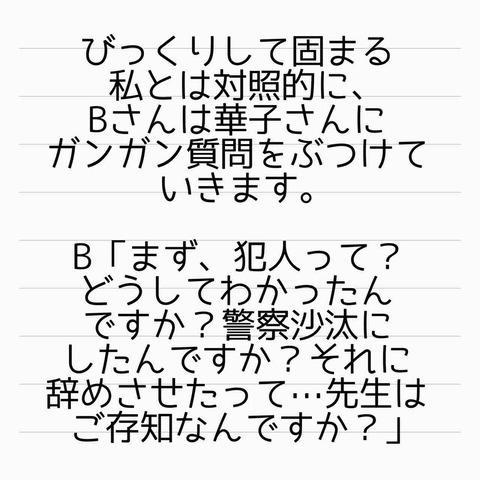 びっくりして固まる
私とは対照的に、
Bさんは華子さんに
ガンガン質問をぶつけて
いきます。
B「まず、犯人って？
どうしてわかったん
ですか？警察沙汰に
したんですか？それに
辞めさせたって…先生は
ご存知なんですか？」